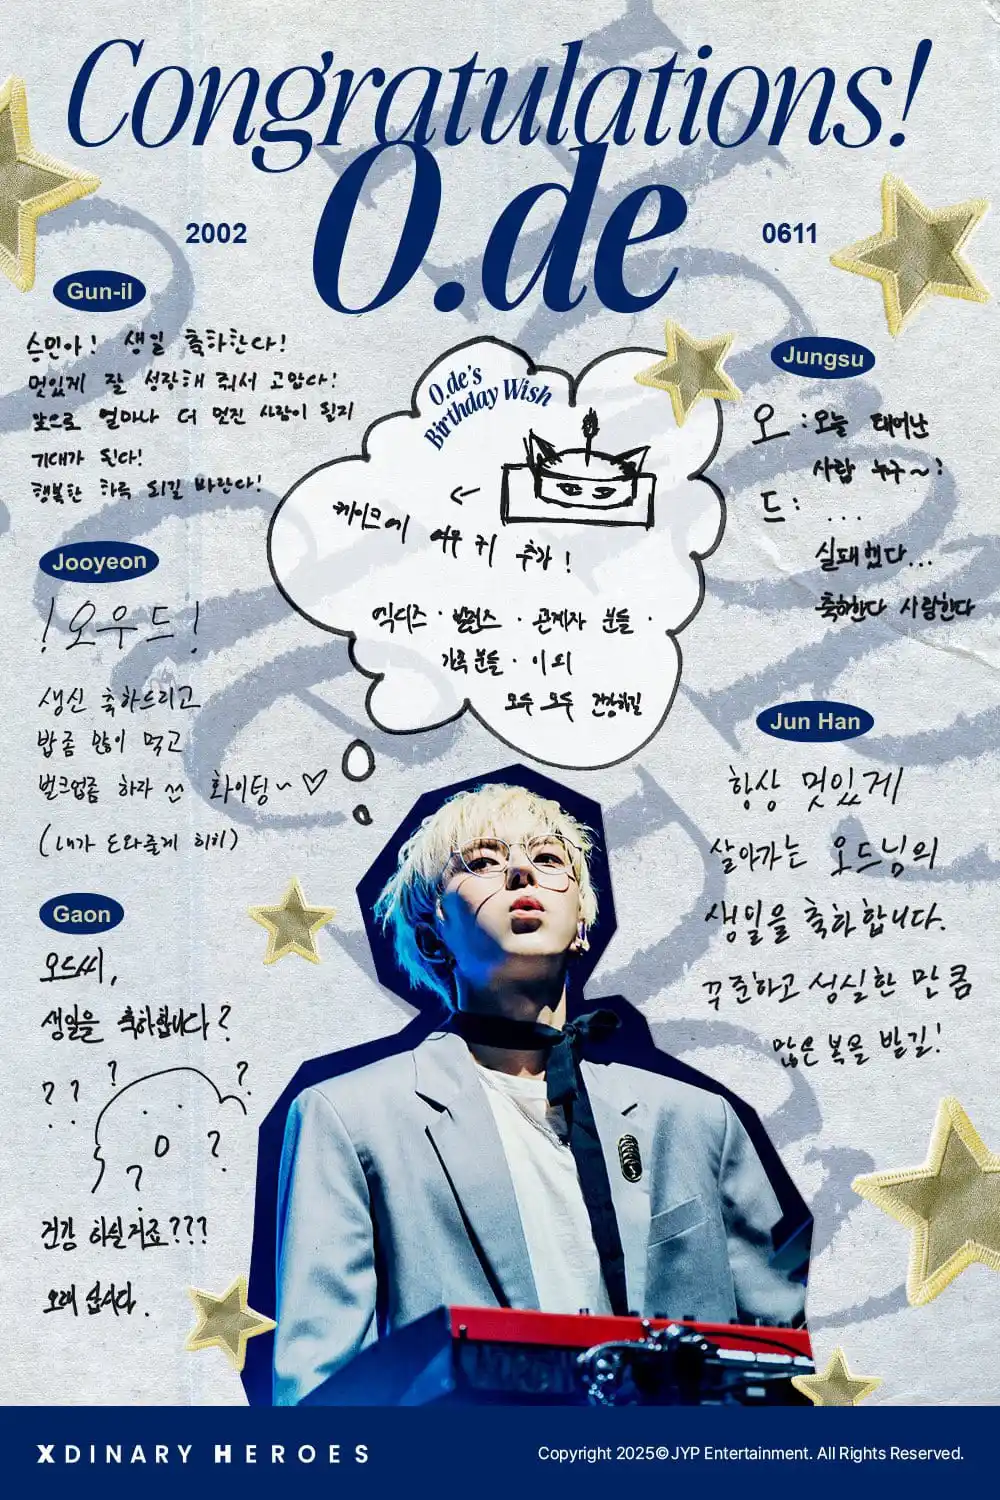 Congratulations!
O.de
2002
0611
Gun-il
승민아! 생일 축하한다!
멋있게 잘 성장해 줘서 고맙다!
앞으로 얼마나 더 멋진 사람이 될지
기대가 된다!
행복한 하루 되길 바란다!
Jooyeon
!오우드!
생신 축하드리고
밥좀 많이 먹고
벌크업좀 하자 화이팅~♡
(내가 도와줄게 히히)
Gaon
오드씨,
생일을 축하합니다?
? ? ? ? ? ?
건강 하실거죠???
오래 삽시다.
O.de's
Birthday Wish
← 
케이크에 여우 귀 추가!
엑디즈 · 빌런즈 · 관계자 분들 ·
가족분들 · 이외
모두 모두 건강하길
Jungsu
오 : 오늘 태어난
사람 누구~?
드 : ...
실패했다...
축하한다 사랑한다
Jun Han
항상 멋있게
살아가는 오드님의
생일을 축하합니다.
꾸준하고 성실한 만큼
많은 복을 받길!
XDINARY HEROES
Copyright 2025© JYP Entertainment. All Rights Reserved.